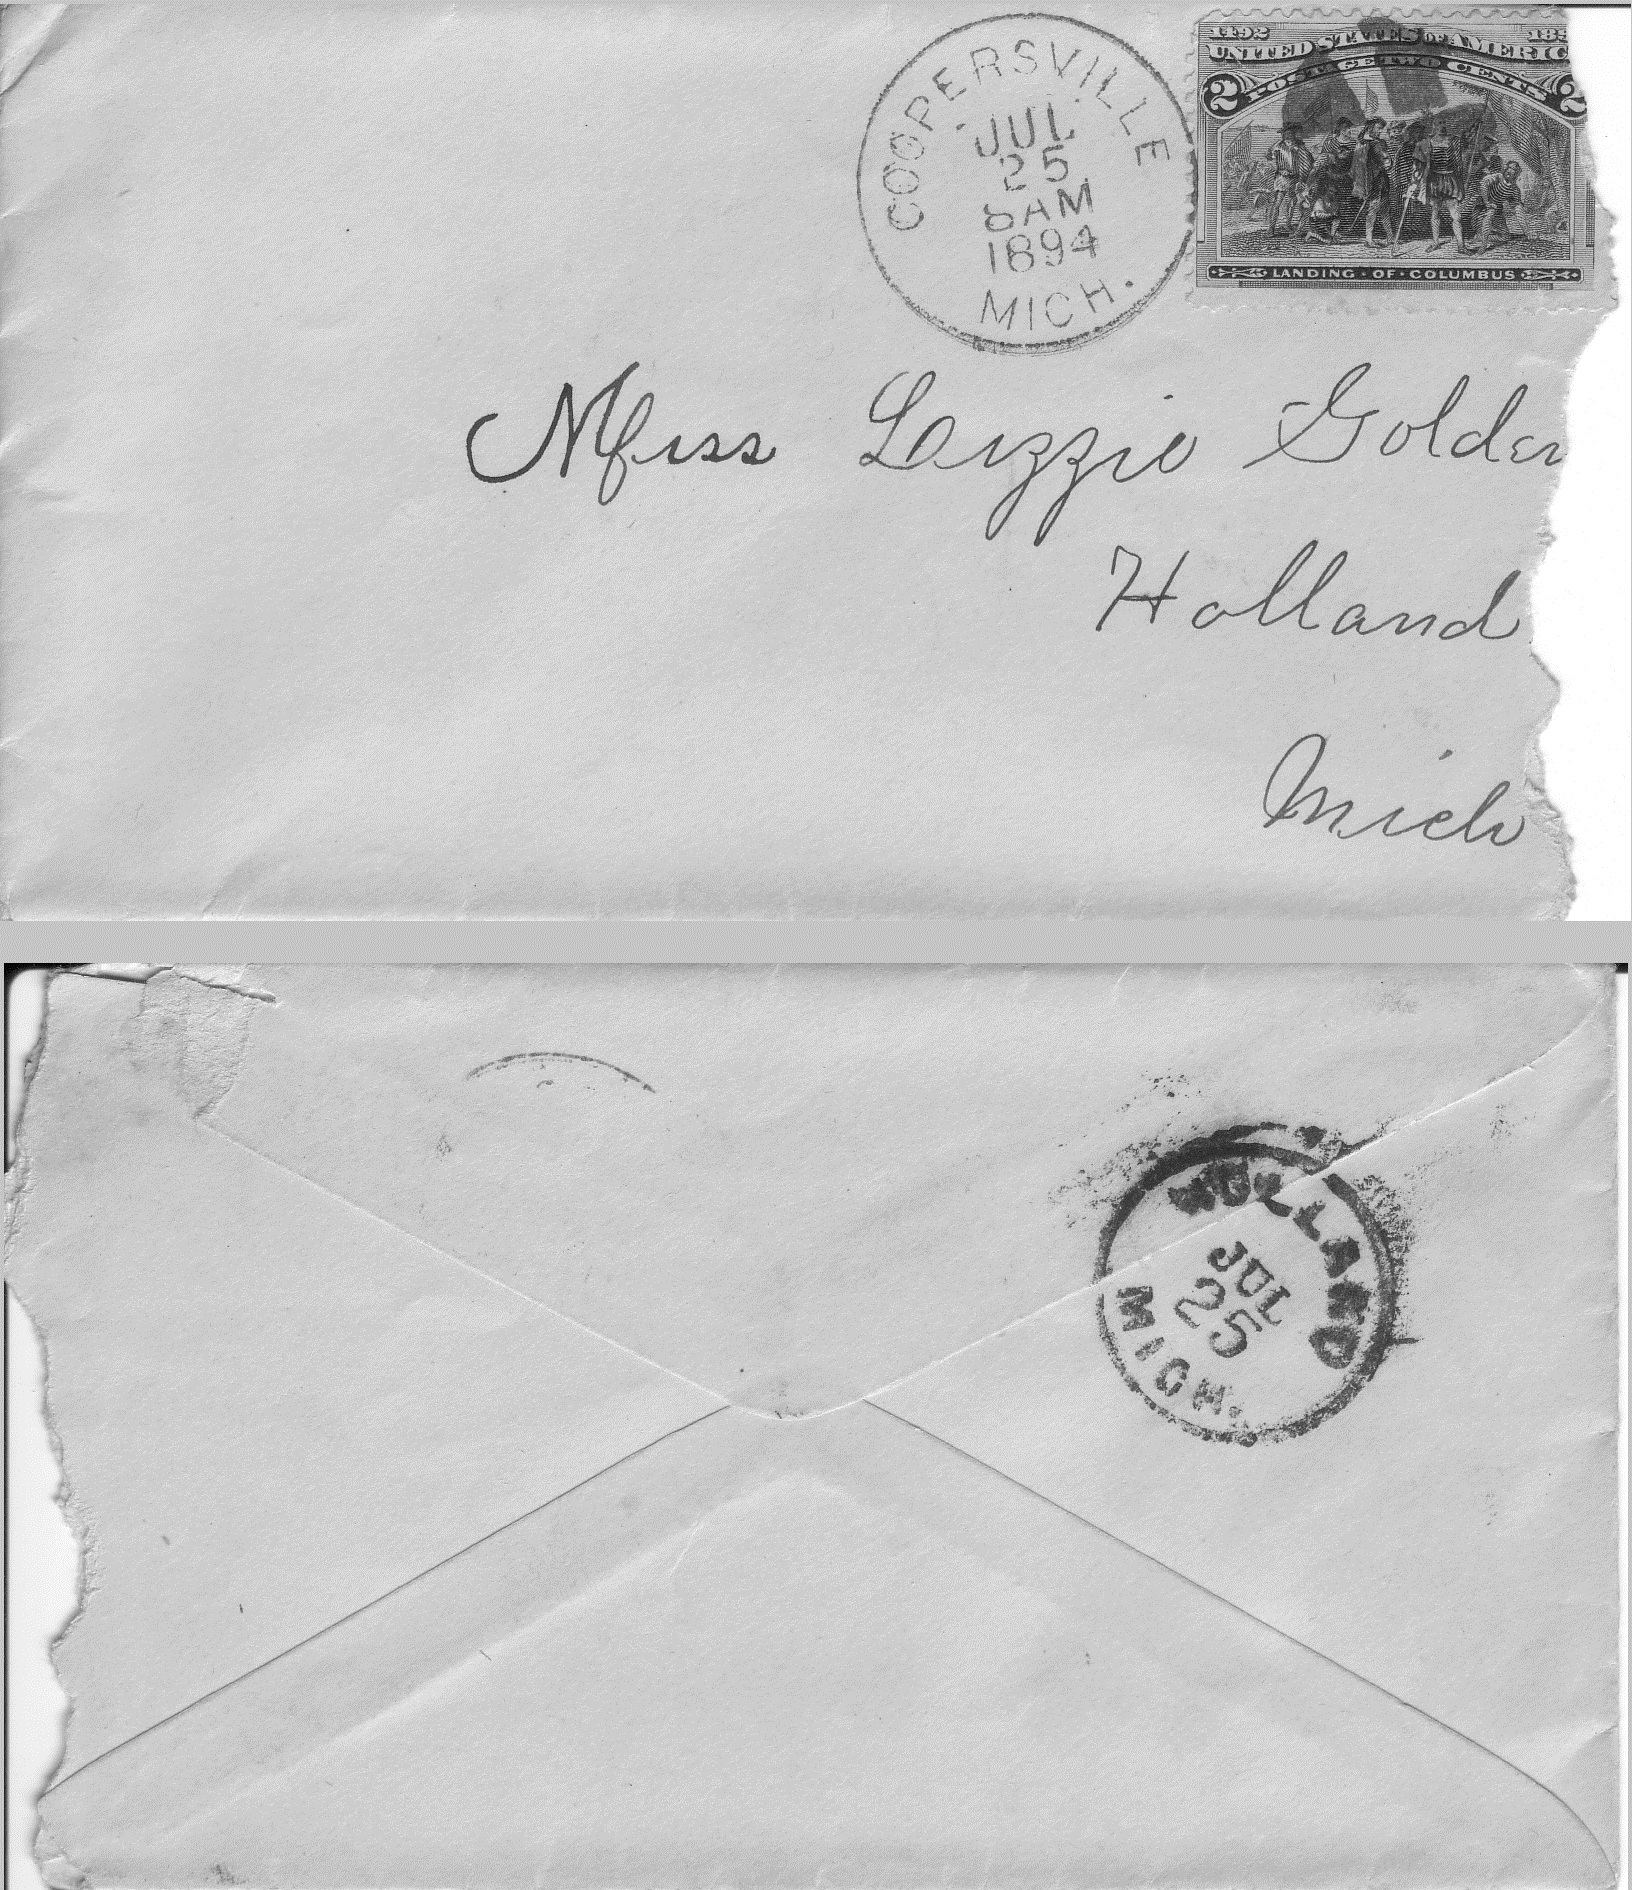 COOPERSVILLE
JUL
25
8AM
1894
MICH.
1492 189
UNITED STATES OF AMERIC
POSTAGE TWO CENTS
2 2
LANDING · OF · COLUMBUS
Miss Lizzie Golden
Holland
Mich
HOLLAND
JUL
25
MICH.